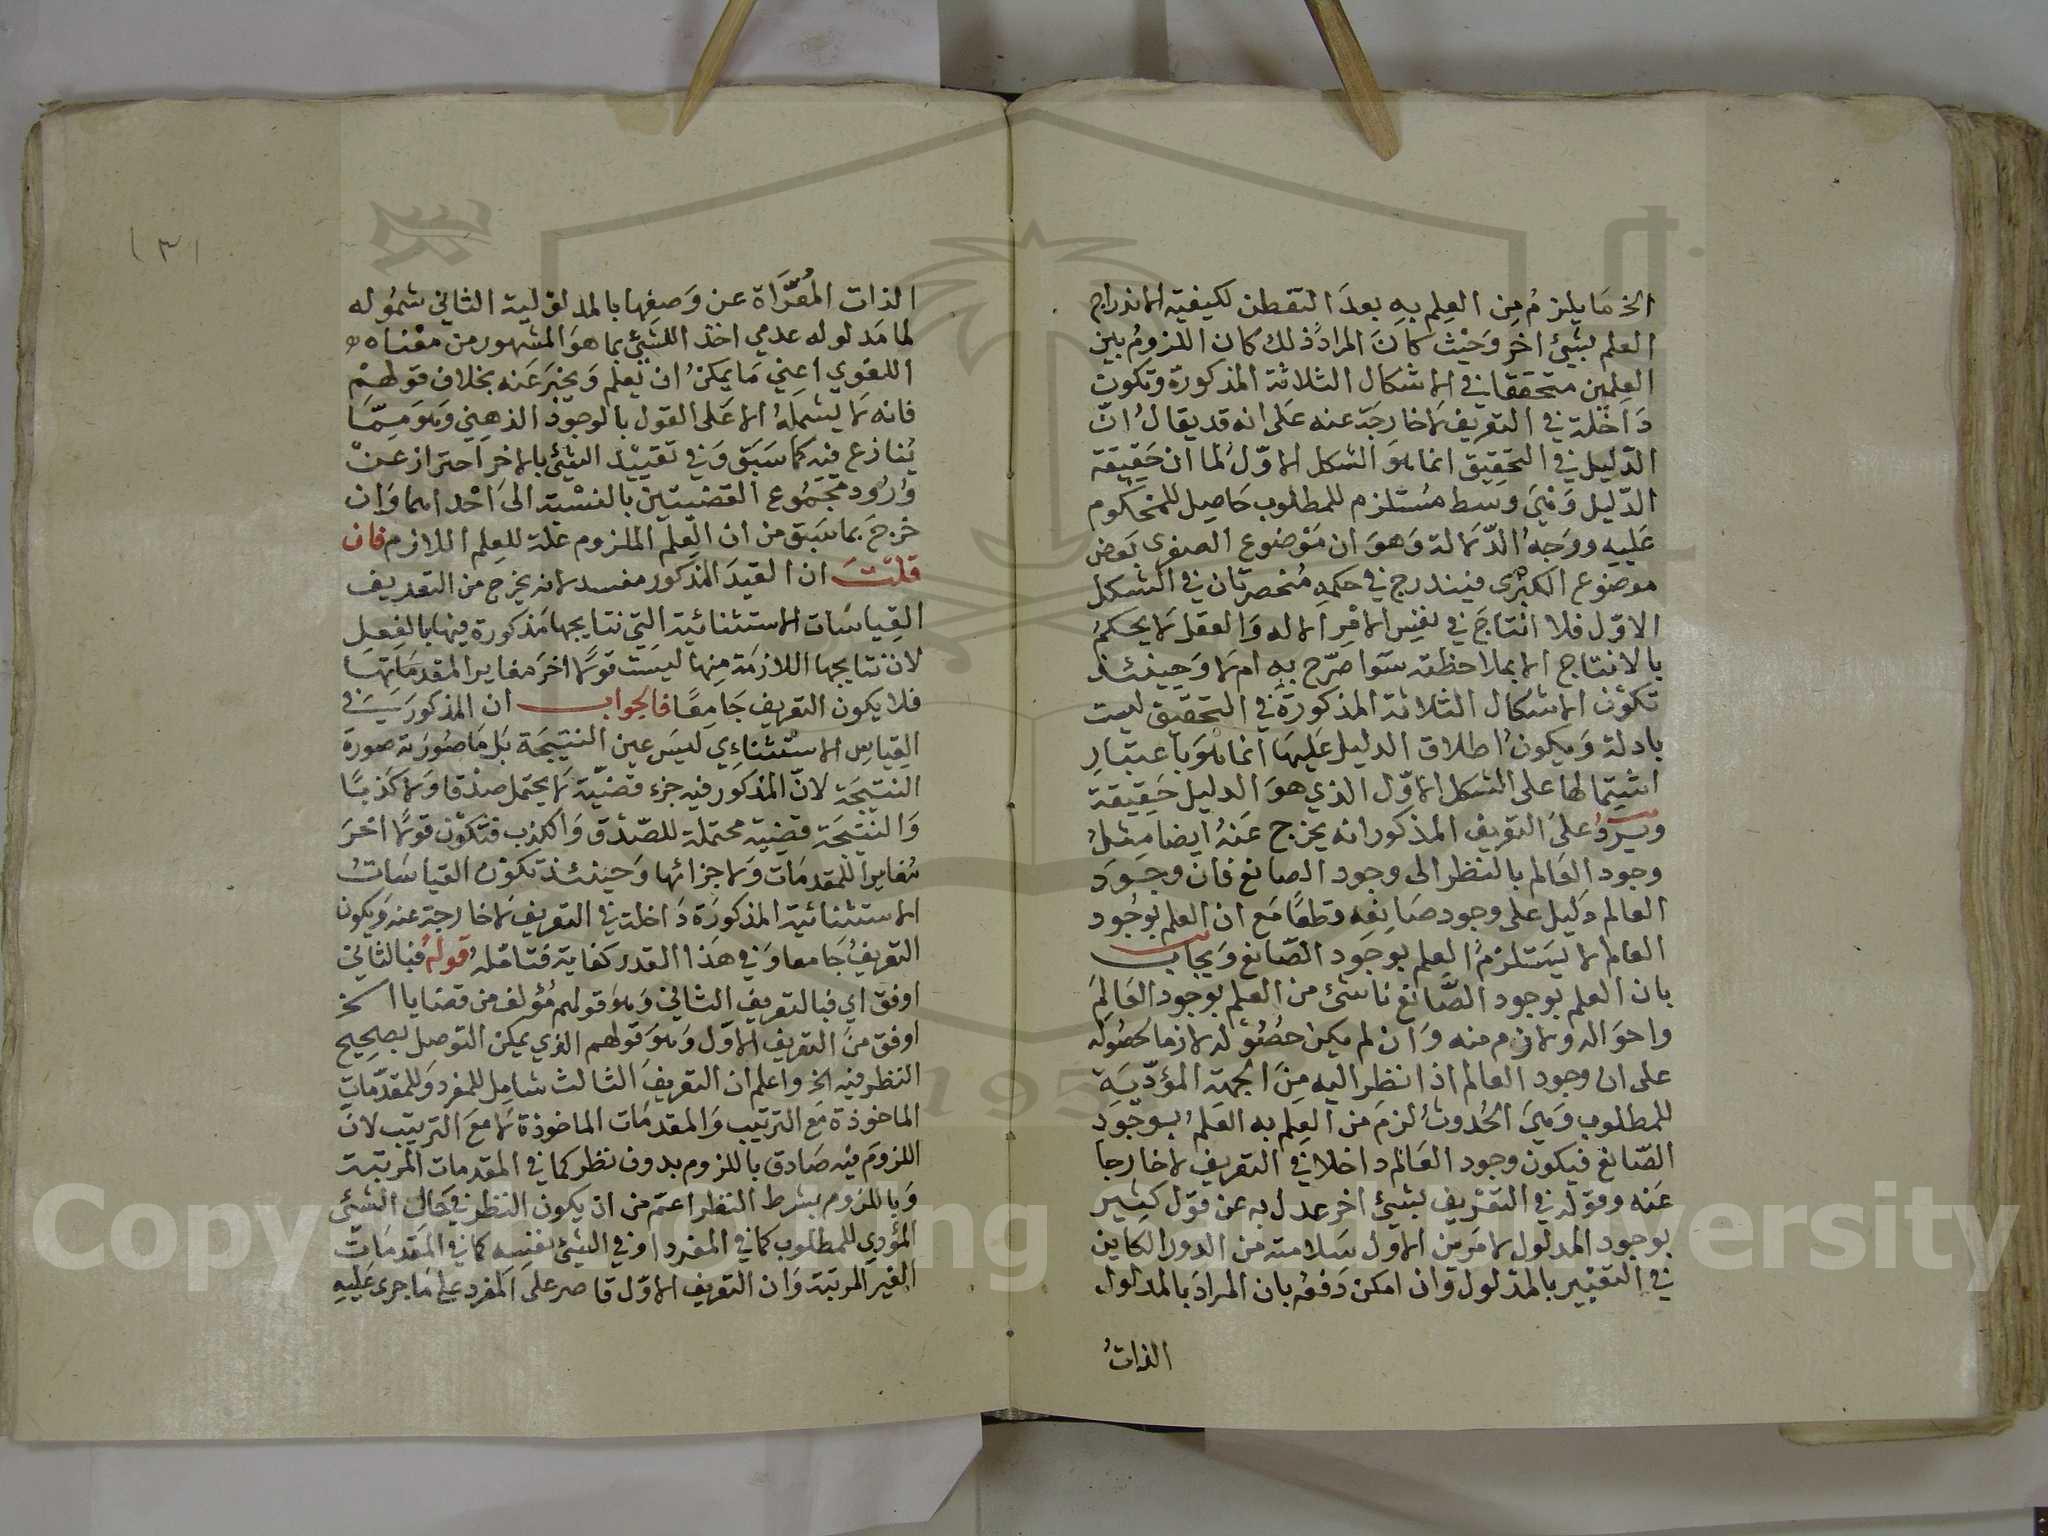 الخ مَا يلزمُ مِن العِلم بهِ بعدَ التفطن لكيفية الاندراج
العلم بشيئ اخرِ وَحَيْث كانَ المرادُ ذلك كان اللزومُ بين
العِلمين متحققا في الاشكال الثلاثة المذكورة وتكون
دَاخلة في التعريف لا خارجَة عنه عَلى انه قد يقالُ انّ
الدّليل في التحقيق انما هوَ الشكل الاوّلُ لما ان حَقيقة
الدّليل وَهيَ وسَط مسْتلزم للمطلوب حَاصِل للمحكوم
عَليهِ ووَجهُ الدّلالة وَهوَ ان مَوْضوع الصغرى بَعض
موضوع الكبْرى فيندرج في حكمهِ مُنحصرتان في الشكل
الاوّل فلا انتاجَ في نفسِ الامْرِ الا له وَالعَقل لا يحكمُ
بالانتاج الا بملاحظته سَوا صرّح بهِ ام لا وَحينئذ
تكوُن الاشكال الثلاثة المذكورَة في التحقيق ليست
بادلة وَيكونُ اطلاق الدليل عَليهَا انما هوَ باعتبَارِ
اشتِمالها على الشكل الاوّل الذي هوَ الدليل حَقِيقة
ويَردُ علىَ التعريف المذكور انه يخرج عَنهُ ايضا مِثلُ
وجود العَالم بالنظر الى وجود الصانع فان وجوَد
العالم دَليل على وجود صَانِعه قطعًا مَع ان العلم بوجُود
العالم لا يَستلزمُ العِلم بوجَود الصّانع وَيجاب
بان العلم بوجود الصَّانع ناشئ من العلم بوجود العَالم
واحوَاله ولازم منه وَان لم يكن حصُوُله لازما لحصُوله
على ان وجود العالم اذا نظر اليه مِنَ الجهة المؤدّيَة
للمطلوب وَهيَ الحُدوثُ لزمَ من العِلم به العَلمُ بوجُوَد
الصّانع فيكون وجود العَالم داخلا في التعريف لا خارجا
عَنه وقوَله في التعْريف بشيئ اخر عدل به عن قوَل كثِير
بوجود المدلول لامَرين الاول سَلامته من الدور الكاين
في التعْبير بالمدلول وان امكن دَفعُه بان المرادَ بالمدلول
الذاتُ
١٣
الذات المُعَرَّاة عن وَصفِها بالمدلولية الثاني شمُوله
لما مَدلوله عدمي اخذ اللشيئ بما هوَ المشهور من معْناه
اللغوي اعني مَا يمكنُ ان يُعلم وَيخبَر عَنه بخلاف قولهمْ
فانه لا يشملهُ الا عَلى القول بالوجود الذهنِي وَهوَ مِمّا
يُنازع فيه كما سَبَق وَفي تقييْد الشيئ بالاخرِ احتراز عَنْ
وُرُود مجمُوع القضيتين بالنسْبة الى احْداهما وَان
خرجَ بما سَبَق من ان العِلم الملزوم علة للعِلم اللازم فان
قلتَ ان القيدَ المذكور مفسد لانه يخرج من التعريف
القِياسَات الاستثنائية التي نتايجها مَذكورة فيها بالفِعل
لان نتايجها اللازمَة مِنها ليسَت قولاً اخرَ مغايرا لمقدمَاتها
فلا يكون التعريف جَامِعًا فالجواب ان المذكورَ في
القياسِ الاسْتثناءِي ليسَ عين النتيجَة بَل مَا صُورَته صورة
النتيجَة لانّ المذكورَ فيه جزء قضيّة لا يحتمل صدْقا وَلا كذبًا
وَالنتيجَة قضية محتملة للصّدْق وَالكذب فتكوُن قولاً اخَر
مُغايرا للمقدمَات وَلاجزائها وَحينئذ تكوُن القياسَاتُ
الاستثنائية المذكورَة دَاخلة في التعريف لا خارجة عنه وَيكون
التعريفُ جَامعا وَفي هَذا القدر كفاية فتامّلهُ قولهُ فبالثاني
اوفق اي فبالتعريف الثاني وَهوَ قولهم مُؤلف من قضايا الخ
اوفق منَ التعريف الاوّل وَهوَ قولهم الذي يمكن التوصل بصحِيح
النظر فيه الخ واعلم ان التعريفَ الثالث شامِل للمفرد وَللمقدّمَات
الماخوذة مَع الترتيب وَالمقدمَات الماخوذة لا معَ الترتيب لانّ
اللزومَ فيه صَادق باللزوم بدون نظر كما في المقدمات المرتبة
وَباللزوم بشرط النظر اعمّ من ان يكون النظر في حَال الشيئ
المُؤدي للمطلوب كما في المفرد او في الشيئ نفسِه كما في المقَدمَات
الغير المرتبة وَان التعريف الاوّل قاصر على المفرد على مَا جرى عَليهِ